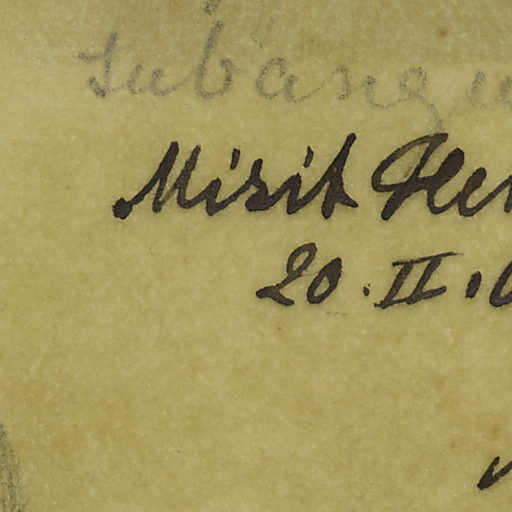 subangu
Misit Hen
20.II.